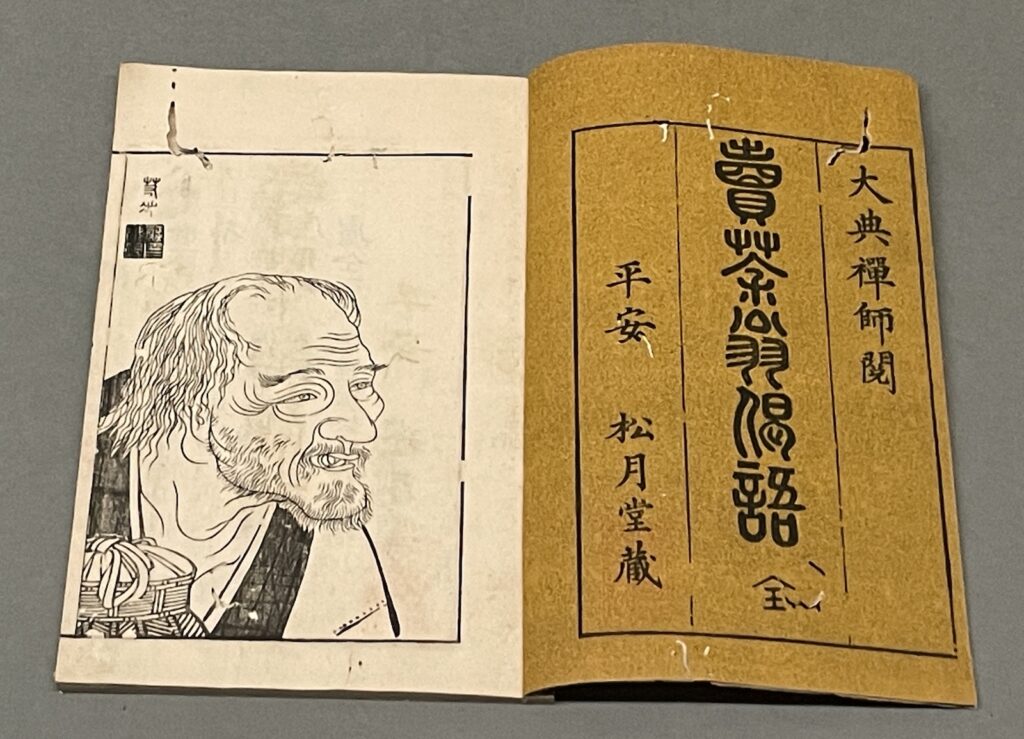 大典禪師閲
賣茶翁偈語
全
平安 松月堂藏